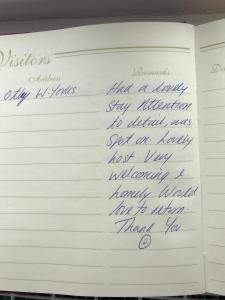 Visitors
Address
Remarks
Da
Otley W. Yorks
Had a lovely
stay. Attention
to detail, was
spot on. Lovely
host Very
welcoming &
homely. Would
love to return.
Thank You